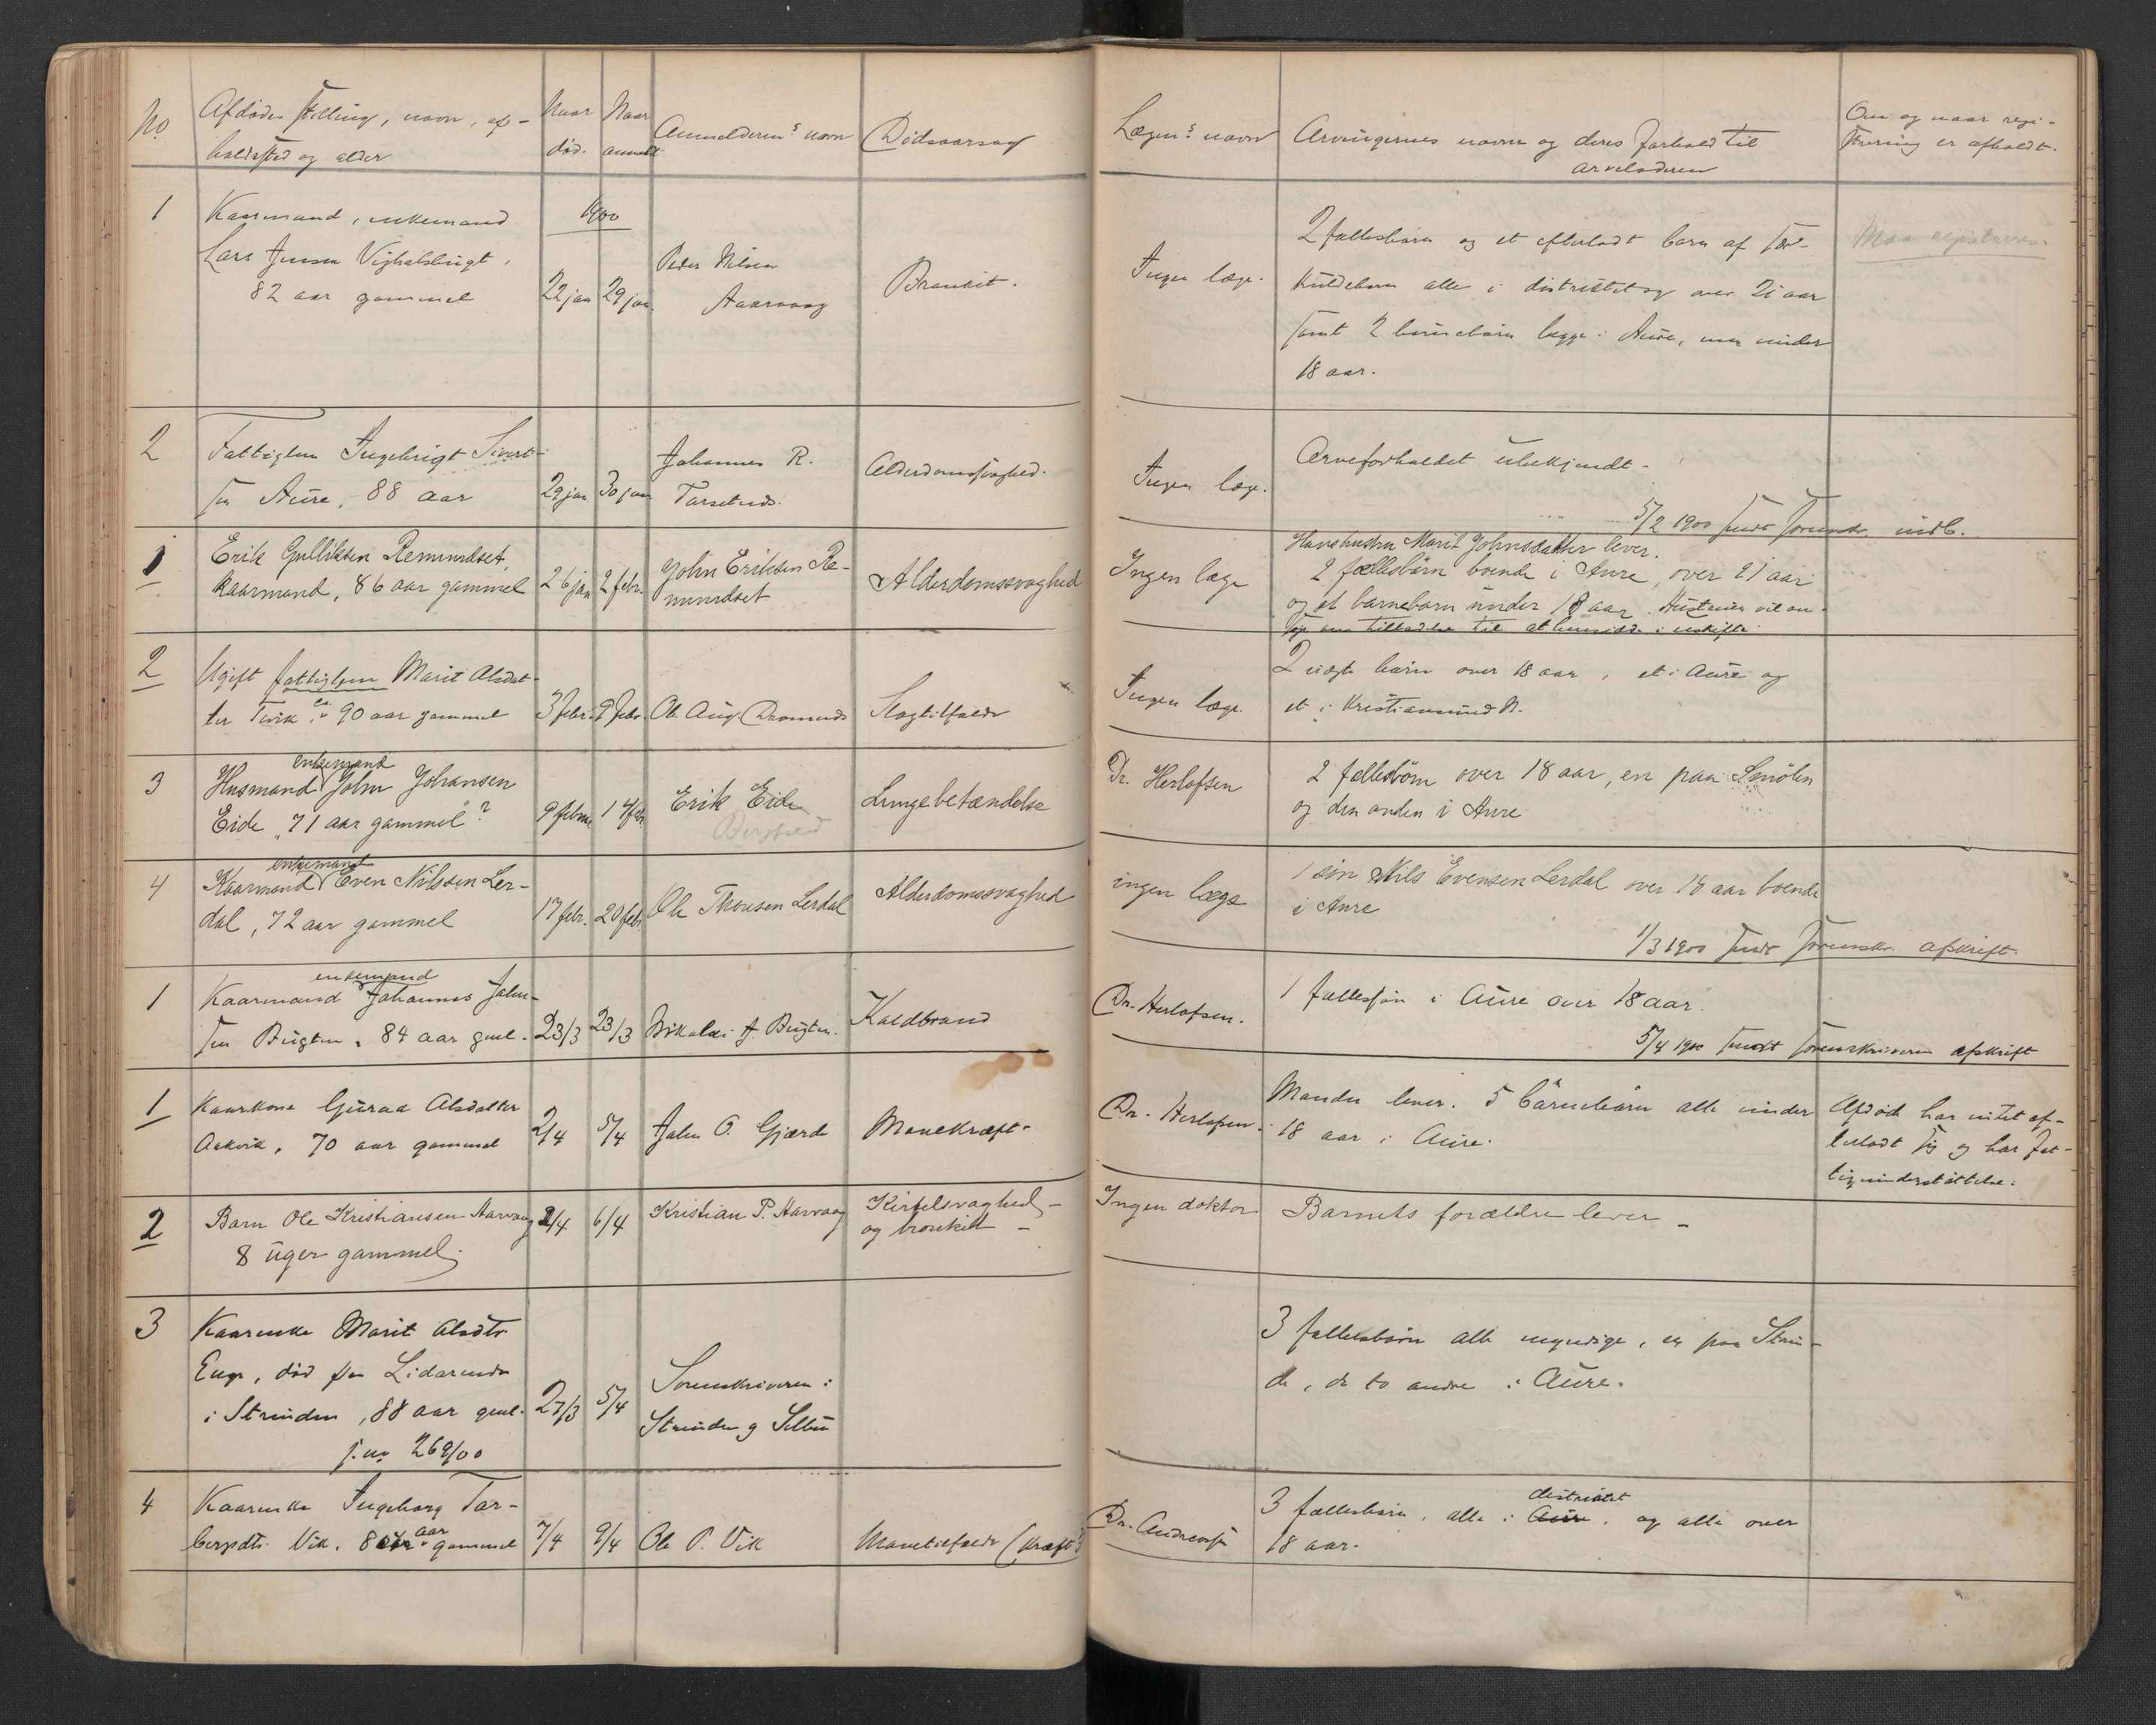 No
Afdødes stilling, navn, op-
holdssted og alder
Naar
død.
Naar
anmeldt
Anmelderens navn
Dødsaarsag
Lægens navn
Arvingernes navne og deres forhold til
arveladeren
Om og naar regi-
strering er afholdt.
1
Kaarmand, enkemand
Lars Jensen
82 aar gammel
1900
22 jan
29 jan.
Peder Nilsen
Aarvaag
Bronkit.
Ingen læge.
2 fællesbørn og et efterladt barn af sær-
kuldebarn alle i distriktet og over 21 aar
samt 2 barnebørn begge i Aure, men under
18 aar.
Maa registreres.
2
Fattiglem Ingebrigt Sivert-
sen Aure, 88 aar
29 jan
30 jan
Johannes R.
Alderdomssvaghed.
Ingen læge.
Arveforholdet ubekjendt.
5/2 1900 sendt sorenskr. indb.
1
Erik Gulliksen Remundset,
kaarmand, 86 aar gammel
26 jan
2 febr.
John Eriksen Re-
mundset
Alderdomssvaghed
Ingen læge
Hans hustru Marit Johnsdatter lever.
2 fællesbørn boende i Aure, over 21 aar
og et barnebarn under 18 aar. Hustruen vil an-
søge om tilladelse til at hensidde i uskifte.
2
Ugift fattiglem Marit Olsdat-
ter Tevik, ca. 90 aar gammel
3 febr.
9 febr.
Ole Aug.
Slagtilfælde
Ingen læge.
2 uægte børn over 18 aar, et i Aure og
et i Kristiansund N.
3
enkemand
Husmand John Johansen
Eide, "71 aar gammel"?
9 febru.
14 febr.
Erik Eide
Lungebetændelse
Dr. Herlofsen
2 fællesbørn over 18 aar, en paa Smølen
og den anden i Aure
4
enkemand
Kaarmand Even Nilssen Ler-
dal, 72 aar gammel
17 febr.
20 febr.
Ole Thoresen Lerdal
Alderdomssvaghed
ingen læge
1 søn Nils Evensen Lerdal over 18 aar boende
i Aure
1/3 1900 sendt sorenskr. afskrift.
1
enkemand
Kaarmand Johannes John-
sen Bugten, 84 aar gml.
23/3
23/3
Nikolai J. Bugten.
Koldbrand
Dr. Herlofsen.
1 fællessøn i Aure over 18 aar.
5/4 1900 sendt sorenskriveren afskrift
1
Kaarkone Guraa Olsdatter
Aakvik, 70 aar gammel
2/4
5/4
John O. Gjærde
Mavekræft.
Dr. Herlofsen.
Manden lever. 5 barnebørn alle under
18 aar i Aure.
Afdøde har intet ef-
terladt sig og har fat-
tigunderstøttelse.
2
Barn Ole Kristiansen Aarvaag
8 uger gammel.
2/4
6/4
Kristian P. Aarvaag
Kirtelsvaghed
og bronkit
Ingen doktor
Barnets forældre lever
3
Kaarenke Marit Olsdtr.
Enge, død paa
i Strinden, 88 aar gml.
j. nr. 269/00
27/3
5/4
Sorenskriveren i
Strinden og Selbu
3 fællesbørn alle myndige, en paa Strin-
de, de to andre i Aure.
4
Kaarenke Ingeborg Tor-
bergsdtr. Vik, aar gammel
7/4
9/4
Ole O. Vik
Mavetilfælde (kræft)
Dr.
3 fællesbørn, alle i distriktet Aure, og alle over
18 aar.